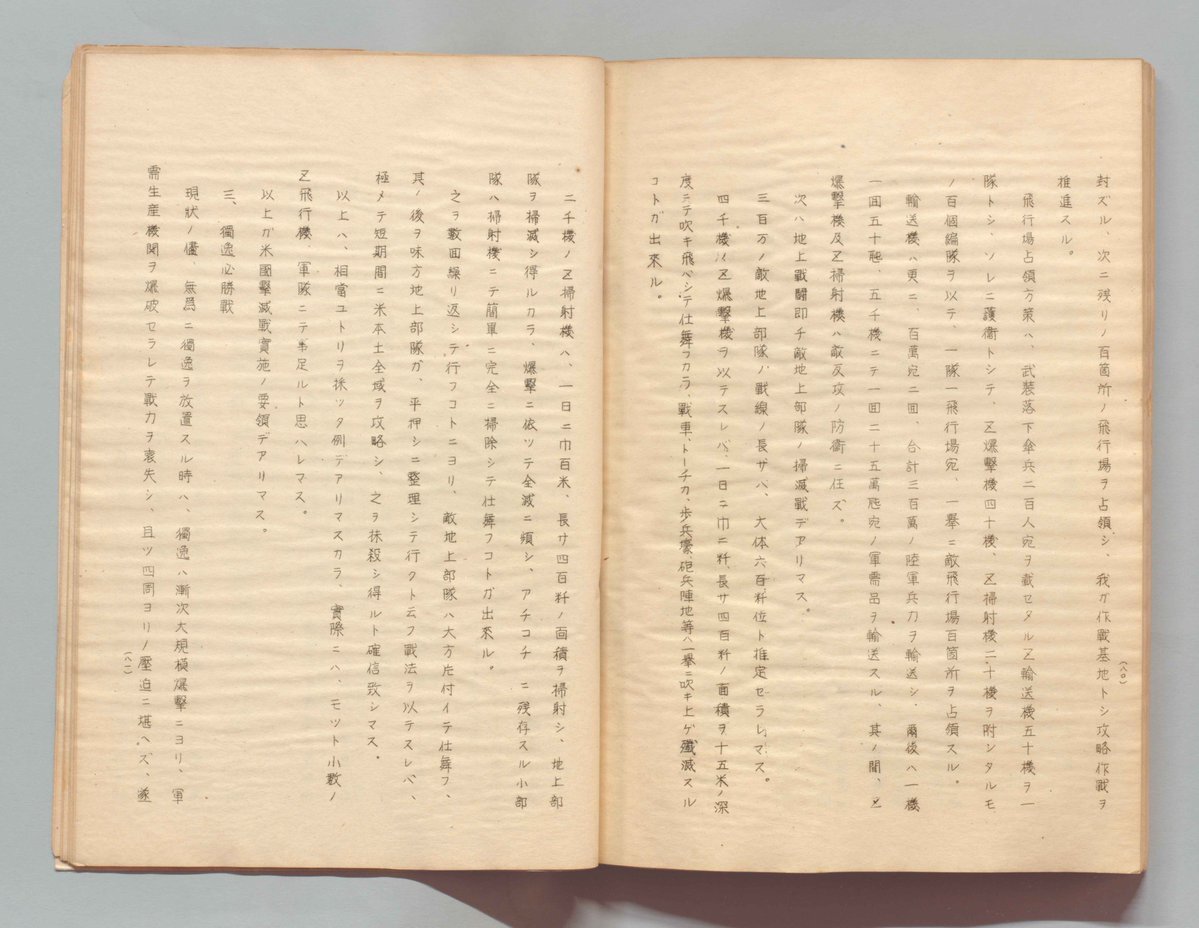 封ズル、次ニ残リノ百箇所ノ飛行場ヲ占領シ、我ガ作戰基地トシ攻略作戰ヲ
推進スル。
飛行場占領方策ハ、武裝落下傘兵二百人宛ヲ載セタルZ輸送機五十機ヲ一
隊トシ、ソレニ護衛トシテ、Z爆擊機四十機、Z掃射機二十機ヲ附シタルモ
ノ百個編隊ヲ以テ、一隊一飛行場宛、一擧ニ敵飛行場百箇所ヲ占領スル。
輸送機ハ更ニ、百萬宛二回、合計三百萬ノ陸軍兵力ヲ輸送シ、爾後ハ一機
一回五十瓲、五千機ニテ一回二十五萬瓲宛ノ軍需品ヲ輸送スル、其ノ間、Z
爆擊機及Z掃射機ハ敵反攻ノ防衛ニ任ズ。
次ハ地上戰鬪即チ敵地上部隊ノ掃滅戰デアリマス。
三百万ノ敵地上部隊ノ戰線ノ長サハ、大体六百粁位ト推定セラレマス。
四千機ノZ爆擊機ヲ以テスレバ、一日ニ巾二粁、長サ四百粁ノ面積ヲ十五米ノ深
度ニテ吹キ飛ベシテ仕舞フカラ、戰車、トーチカ、歩兵壕、砲兵陣地等ハ一擧ニ吹キ上ゲ殲滅スル
コトガ出來ル。
(八〇)
二千機ノZ掃射機ハ、一日ニ巾百米、長サ四百粁ノ面積ヲ掃射シ、地上部
隊ヲ掃滅シ得ルカラ、爆擊ニ依ツテ全滅ニ頻シ、アチコチニ残存スル小部
隊ハ掃射機ニテ簡單ニ完全ニ掃除シテ仕舞フコトガ出來ル。
之ヲ數回繰リ返シテ行フコトニヨリ、敵地上部隊ハ大方片付イテ仕舞フ、
其ノ後ヲ味方地上部隊ガ、平押シニ整理シテ行クト云フ戰法ヲ以テスレバ、
極メテ短期間ニ米本土全域ヲ攻略シ、之ヲ抹殺シ得ルト確信致シマス。
以上ハ、相當ユトリヲ採ツタ例デアリマスカラ、實際ニハ、モツト小數ノ
Z飛行機、軍隊ニテ事足ルト思ハレマス。
以上ガ米國擊滅戰實施ノ要領デアリマス。
三、獨逸必勝戰
現狀ノ儘、無爲ニ獨逸ヲ放置スル時ハ、獨逸ハ漸次大規模爆擊ニヨリ、軍
需生産機関ヲ爆破セラレテ戰力ヲ衰失シ、且ツ四周ヨリノ壓迫ニ堪ヘズ、遂
(八一)